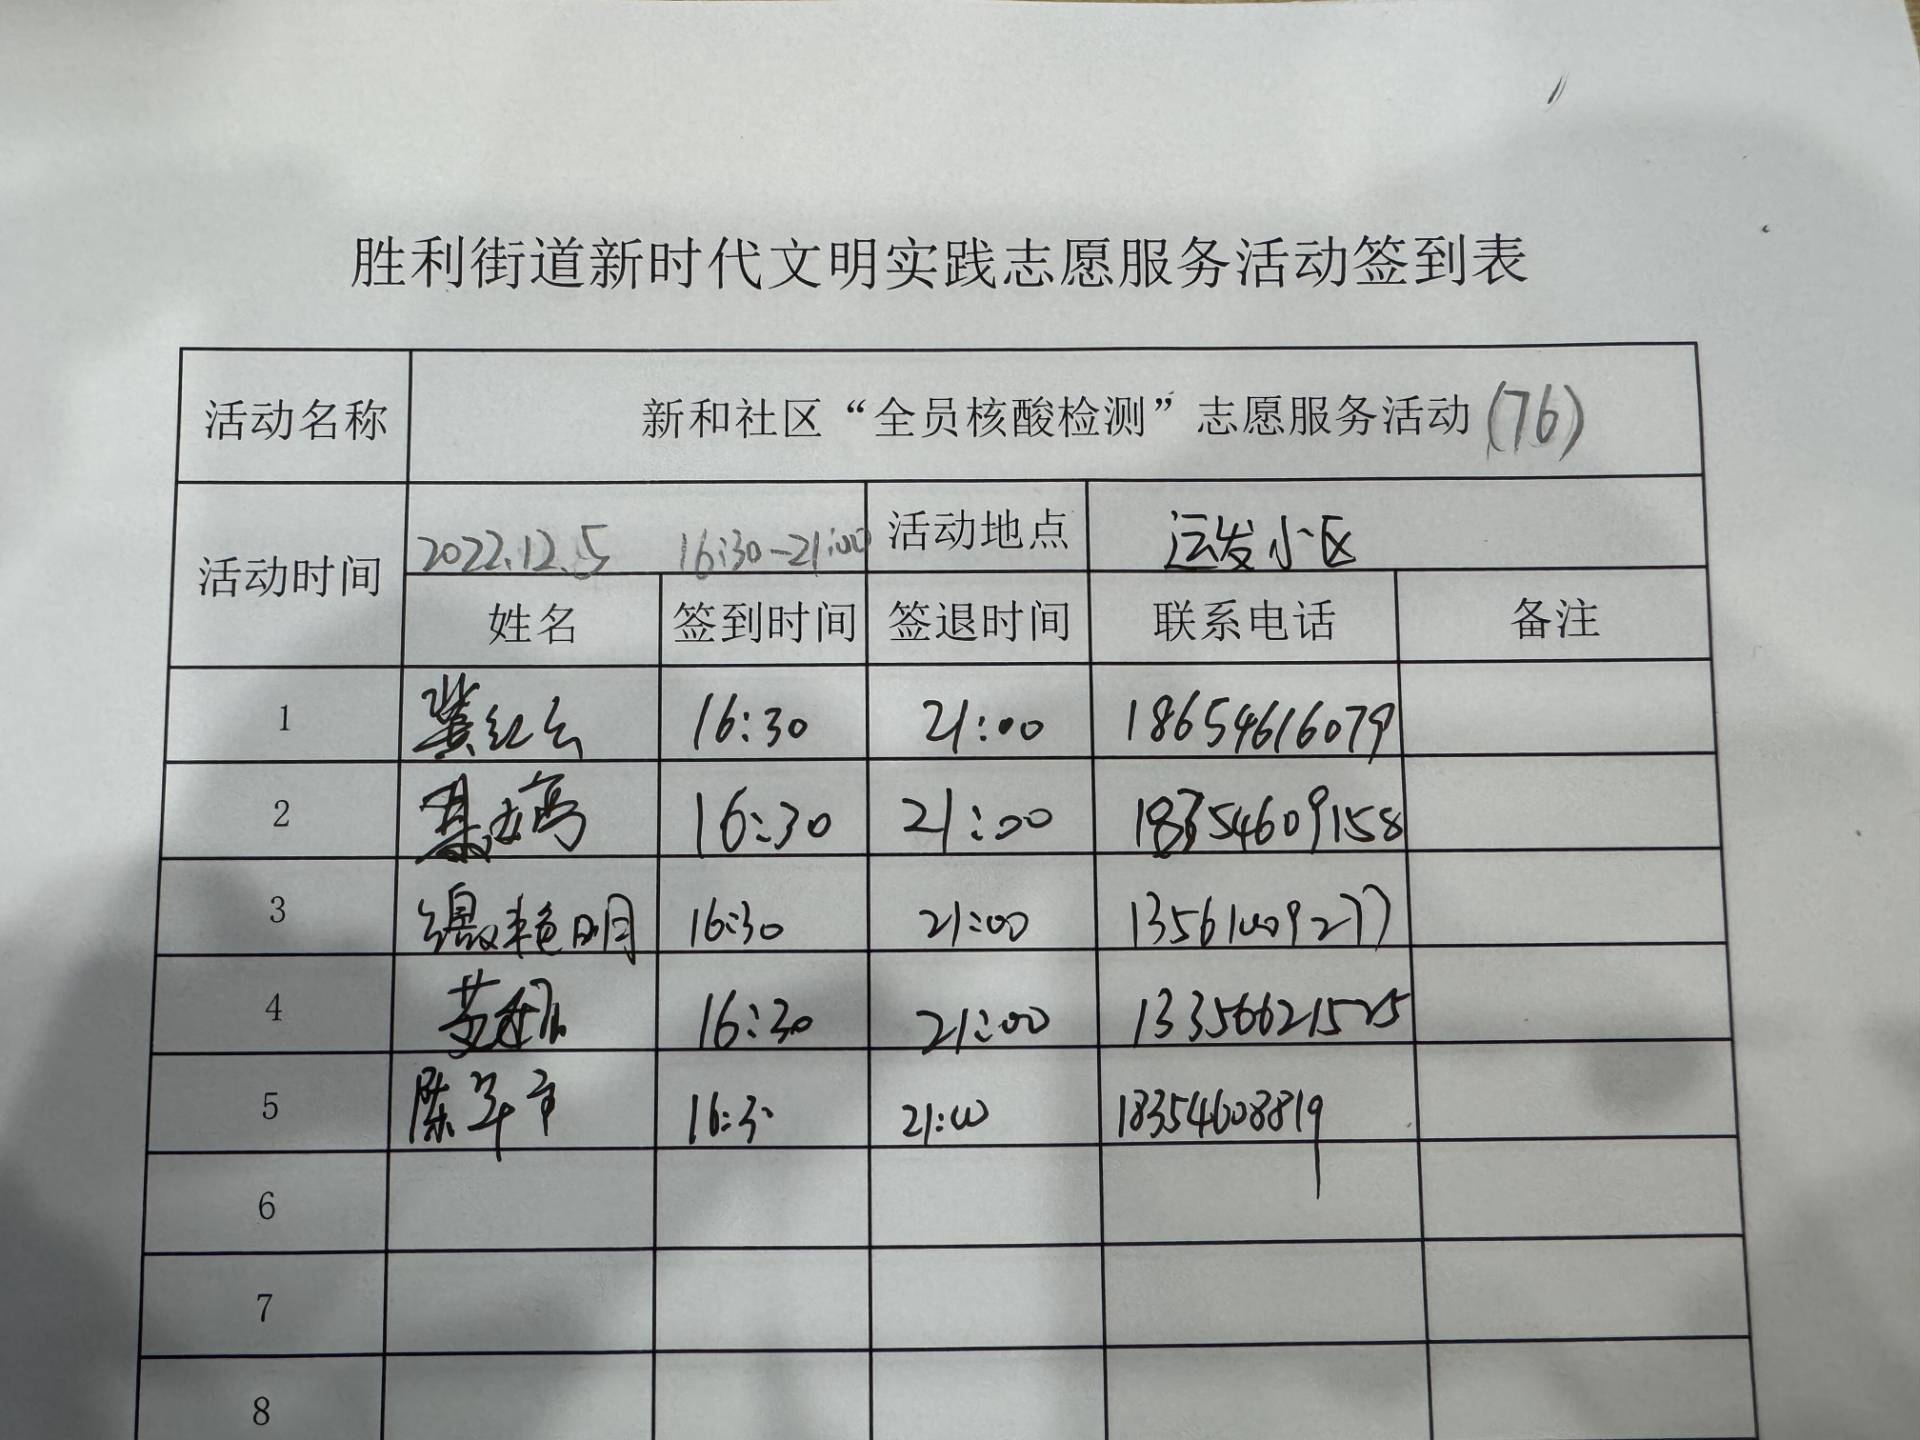 胜利街道新时代文明实践志愿服务活动签到表
活动名称 新和社区“全员核酸检测”志愿服务活动 (76)
活动时间 2022.12.5 16:30-21:00 活动地点 运发小区
姓名 签到时间 签退时间 联系电话 备注
1 冀红云 16:30 21:00 18654616079
2 16:30 21:00 18354609158
3 缴艳明 16:30 21:00 13561009277
4 16:30 21:00 13356621525
5 陈军市 16:30 21:00 18354608819
6
7
8